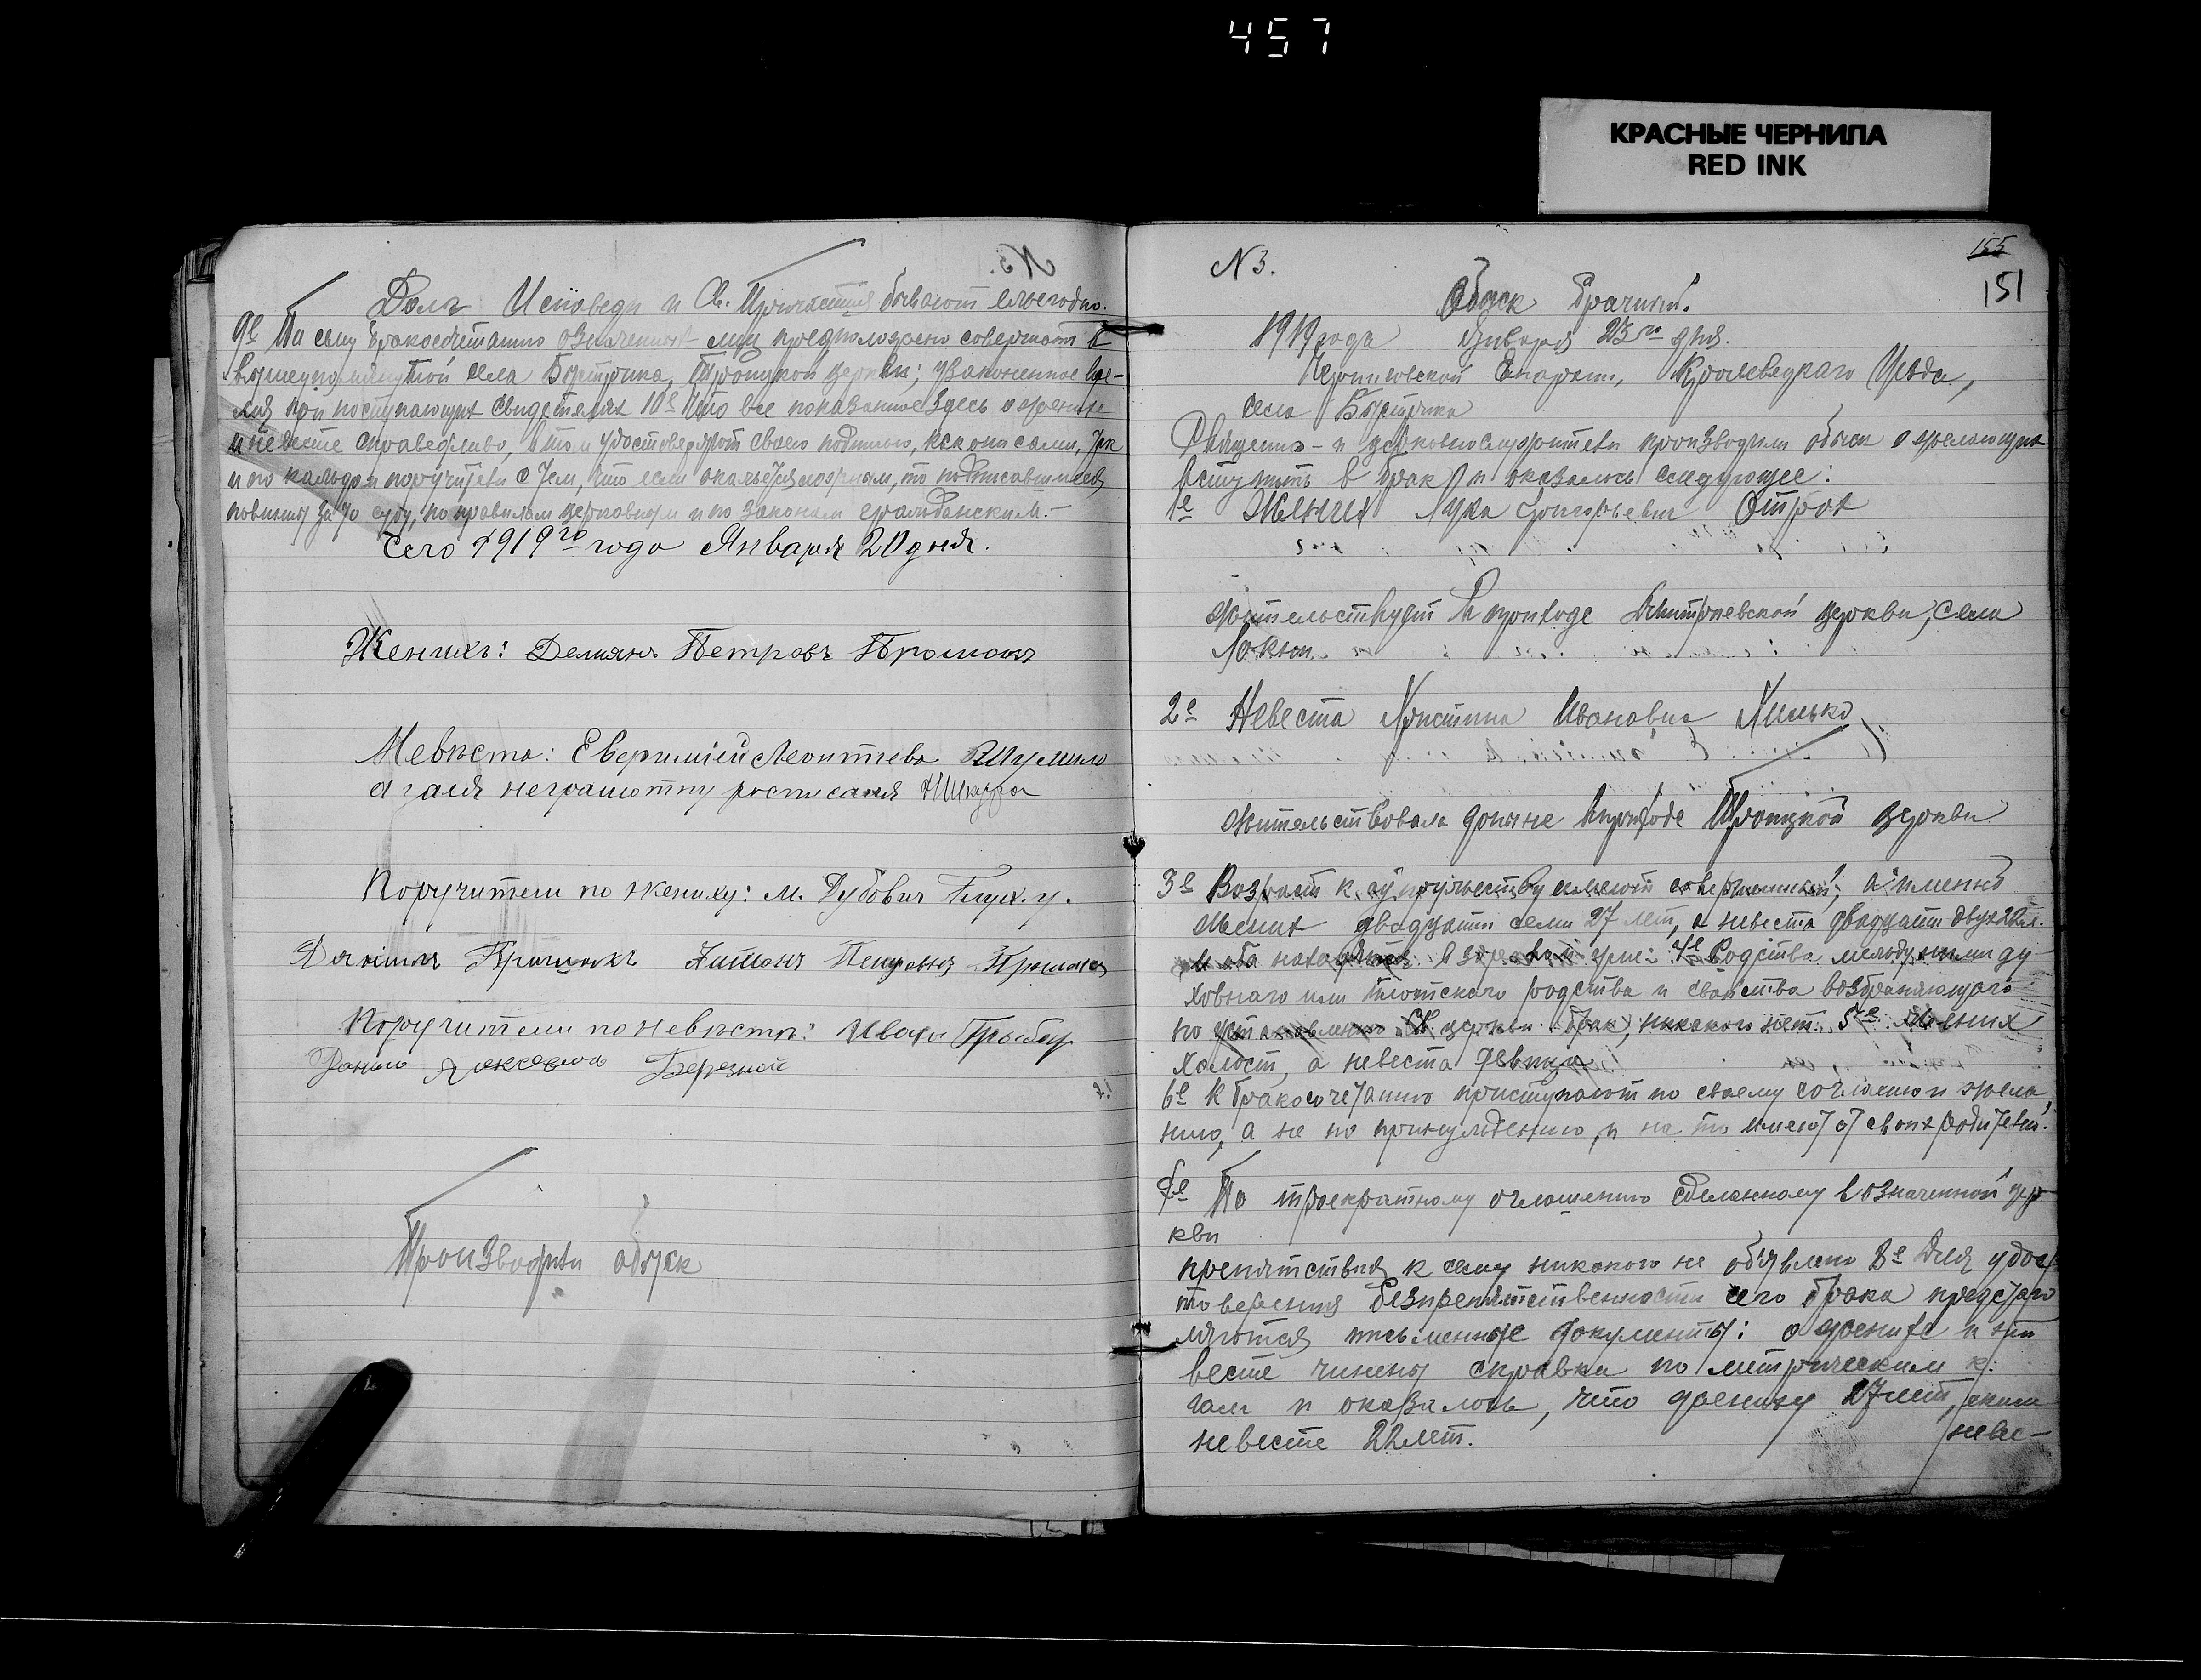 457
КРАСНЫЕ ЧЕРНИЛА
RED INK
Долг Исповеди и Св. Причастия бывают ежегодно.
9е По сему бракосочетанию означенных лиц предположено совершить в
вышеупомянутой села Быстрика, Троицкой церкви; узаконенное вре-
мя при поступающих свидетелях 10е Что все показанное здесь о женихе
и невесте справедливо, в том и удостоверяют своею подписью, как они сами, так
и по каждом поручители с тем, что если окажется ложным, то подписавшиеся
повинны за то суду, по правилам церковным и по законам гражданским.-
Сего 1919го года Января 20 дня.
Женихъ: Демянъ Петровъ
Невѣста: Леонтиева
а за ея неграмотну росписался
Поручители по жениху: М. Дубович
Поручители по невѣсте: Иван
Данило Алексеевич Березной
Производили обыск
N 3.
155
151
Обыск брачный.
1919 года Января 23го дня.
Черниговской Епархии, Кролевецкаго Уезда,
села Быстрика
Священно- и церковнослужители производили обыск о желающих
вступить в брак и оказалось следующее:
1е Жених Лука Григорьевич Отрох
жительствует в приходе Дмитриевской церкви, села
Локни
2е Невеста Христина Ивановна Хилько
жительствовала доныне в приходе Троицкой церкви
3е Возраст к супружеству имеют совершенный, а именно
жених двадцати семи 27 лет, а невеста двадцати двух 22 л.
и оба находятся в здравом уме. 4е Родства между ними ду-
ховнаго или плотскаго родства и свойства возбраняющаго
по установлению Св. церкви брак, никакого нет. 5е Жених
холост, а невеста девица
6е К бракосочетанию приступают по своему согласию и жела
нию, а не по принуждению, и на то имеют от своих родителей.
7е По троекратному оглашению сделанному в означенной цер
кви
препятствия к сему никакого не объявлено 8е Для удос
товерения безпрепятственности сего брака представ
ляются письменные документы: о женихе и не
весте чинены справки по метрическим к.
гам и оказалось, что жениху 27 лет,
невесте 22 лет.
неве-